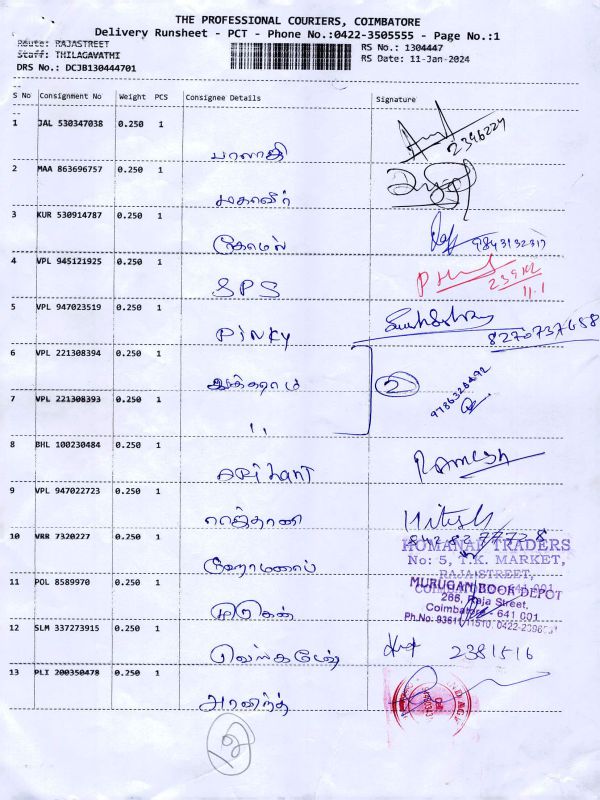 THE PROFESSIONAL COURIERS, COIMBATORE
Delivery Runsheet - PCT - Phone No.:0422-3505555 - Page No.:1
Route: RAJASTREET
Staff: THILAGAVATHI
DRS No.: DCJB130444701
RS No.: 1304447
RS Date: 11-Jan-2024
S No Consignment No Weight PCS Consignee Details Signature
1 JAL 530347038 0.250 1
பாலாஜி
2 MAA 863696757 0.250 1
மகாவீர்
3 KUR 530914787 0.250 1
கோமல்
4 VPL 945121925 0.250 1
SPS
11.1
5 VPL 947023519 0.250 1
PINKY
8270737658
6 VPL 221308394 0.250 1
2
7 VPL 221308393 0.250 1
"
8 BHL 100230484 0.250 1
ARihANT
RAMESH
9 VPL 947022723 0.250 1
ராஜ்தானி
Hitesh
10 VRR 7320227 0.250 1
HOMANAI TRADERS
No: 5, T.K. MARKET,
RAJA STREET,
11 POL 8589970 0.250 1
முருகன்
MURUGAN BOOK DEPOT
286, Raja Street,
Coimbatore - 641 001
12 SLM 337273915 0.250 1
வெங்கடேஷ்
13 PLI 200350478 0.250 1
அரவிந்த்